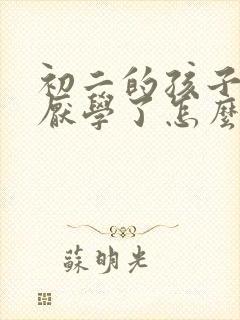 初二的孩子
厭學了怎麼
蘇明光